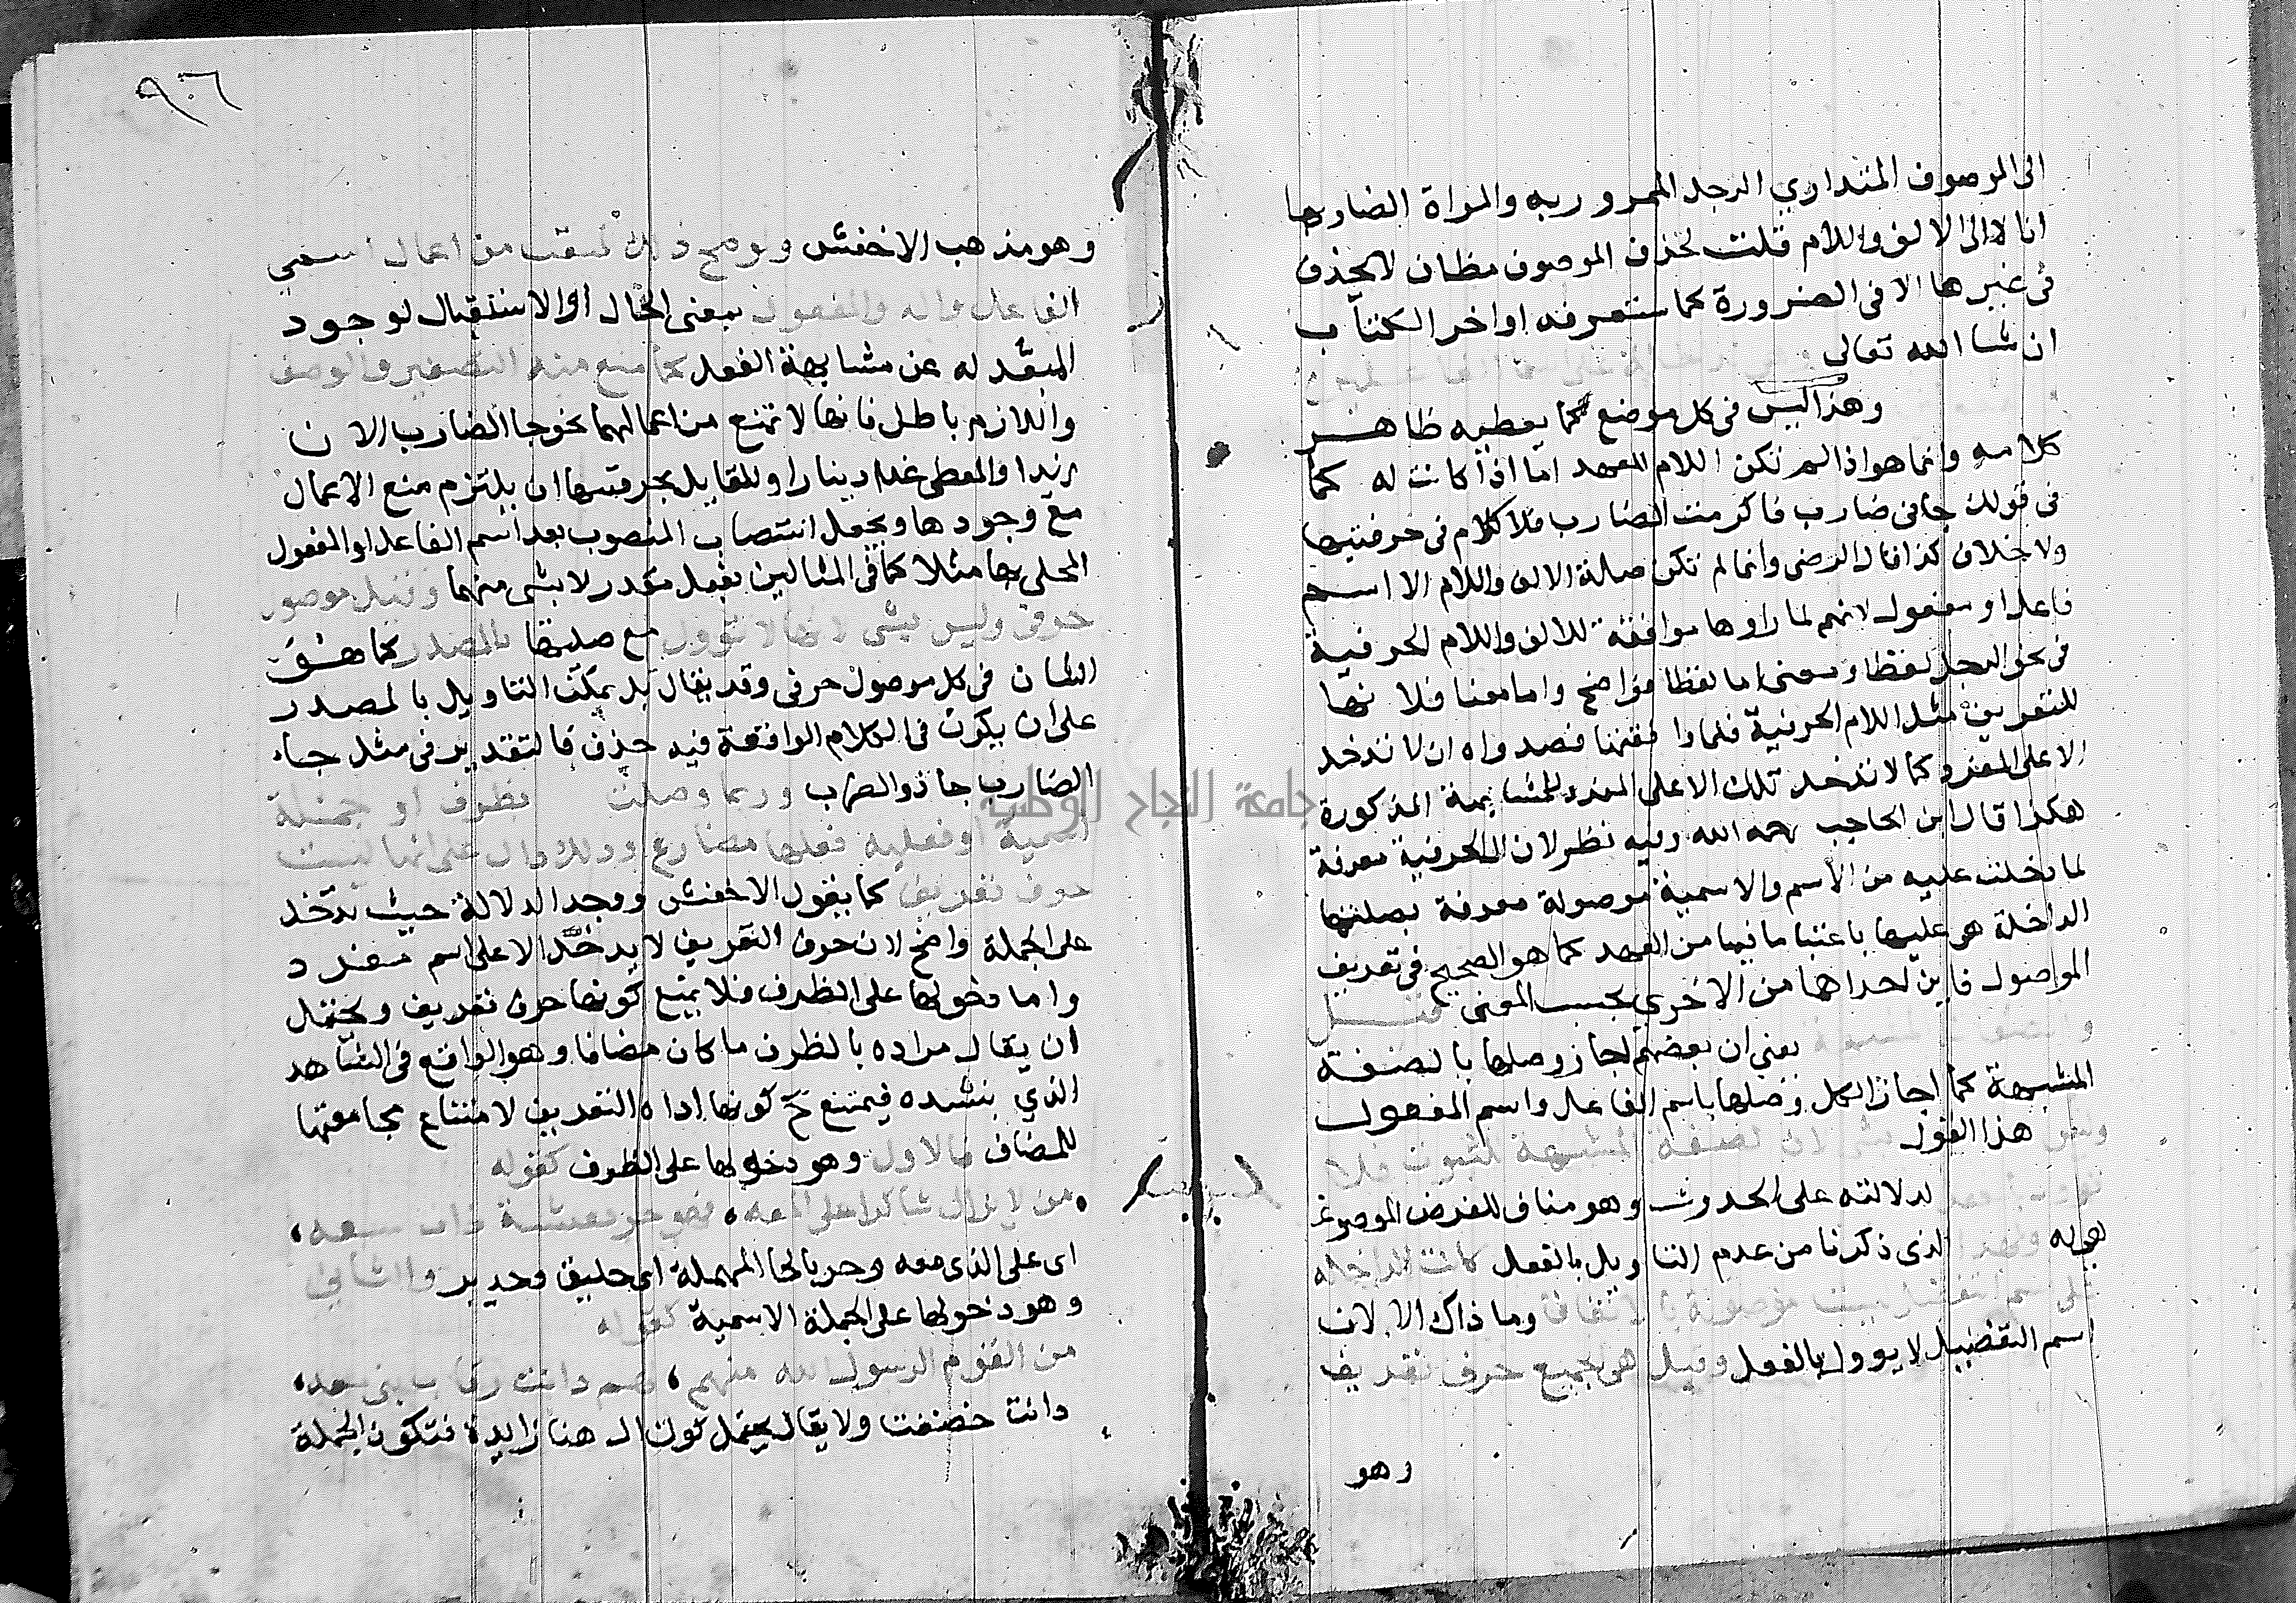 الى الموصوف المقدر اي الرجل الممرور به والمراة الضاربها
انا لا الى الالف واللام قلت لحذف الموصوف مظان لا يحذف
في غيرها الا في الضرورة كما ستعرفه اواخر الكتاب
ان شا الله تعالى
وهذا ليس في كل موضع كما يعطيه ظاهر
كلامه وانما هو اذا لم تكن اللام للعهد اما اذا كانت له كما
في قولك جاني ضارب فاكرمت الضارب فلا كلام في حرفيتها
ولا خلاف كذا قال الرضى وانما لم تكن صلة الالف واللام الا اسم
فاعل او مفعول لانهم لما راوها موافقة للالف واللام الحرفية
في نحو الرجل لفظا ومعنى اما لفظا فواضح واما معنا فلانها
للتعريف مثل اللام الحرفية فلما وافقتها قصدوا ان لا تدخل
الا على المفرد كما لا تدخل تلك الا على المفرد للمشابهة المذكورة
هكذا قال ابن الحاجب رحمه الله وفيه نظر لان الحرفية معرفة
لما دخلت عليه من الاسم والاسمية موصولة معرفة بصلتها
الداخلة هي عليها باعتبار ما فيها من العهد كما هو الصحيح في تعريف
الموصول فاين احداهما من الاخرى بحسب المعنى قيل
والصفات المشبهة يعني ان بعضهم اجاز وصلها بالصفة
المشبهة كما اجاز الكل وصلها باسم الفاعل واسم المفعول
وليس هذا القول بشي لان الصفة المشبهة للثبوت فلا
تؤول بالفعل لدلالته على الحدوث وهو مناف للغرض الموضوعة
هي له ولهذا الذي ذكرنا من عدم التاويل بالفعل كانت الداخلة
على اسم التفضيل ليست موصولة بالاتفاق وما ذاك الا لان
اسم التفضيل لا يوول بالفعل وقيل هي في الجميع حرف تعريف
وهو
٩٦
وهو مذهب الاخفش ولو صح ذلك لمنعت من اعمال اسمي
الفاعل والمفعول بمعنى الحال او الاستقبال لوجود
المبعد له عن مشابهة الفعل كما منع منه التصغير والوصف
واللازم باطل فانها لا تمنع من اعمالهما نحو جا الضارب الان
زيدا والمعطى غدا دينارا وللقايل بحرفيتها ان يلتزم منع الاعمال
مع وجودها ويجعل انتصاب المنصوب بعد اسم الفاعل او المفعول
المحلى بها مثلا كما في المثالين بفعل مقدر لا بشى منهما وقيل موصول
حرفي وليس بشي لانها لا تؤول مع صلتها بالمصدر كما هو
الشان في كل موصول حرفي وقد يقال بل يمكن التاويل بالمصدر
على ان يكون في الكلام الواقعة فيه حذف فالتقدير في مثل جاء
الضارب جا ذو الضرب وربما وصلت بظرف او جملة
اسمية او فعلية فعلها مضارع وذلك دال على انها ليست
حرف تعريف كما يقول الاخفش ووجه الدلالة حيث تدخل
على الجملة واضح لان حرف التعريف لا يدخل الا على اسم مفرد
واما دخولها على الظرف فلا يمنع كونها حرف تعريف ويحتمل
ان يقال مراده بالظرف ما كان مضافا وهو الواقع في الشاهد
الذي ينشده فيمتنع ح كونها اداة التعريف لامتناع مجامعتها
للمضاف فالاول وهو دخولها على الظرف كقوله
من لا يزال شاكرا على المعه، فهو حر بعيشة ذات سعه،
اى على الذى معه وحر بالحا المهملة اى حليق وجدير والثاني
وهو دخولها على الجملة الاسمية كقوله
من القوم الرسول الله منهم، لهم دانت رقاب بني معد،
دانت خضعت ولا يقال يحتمل كون ال هنا زايدة فتكون الجملة
جامعة النجاح الوطنية